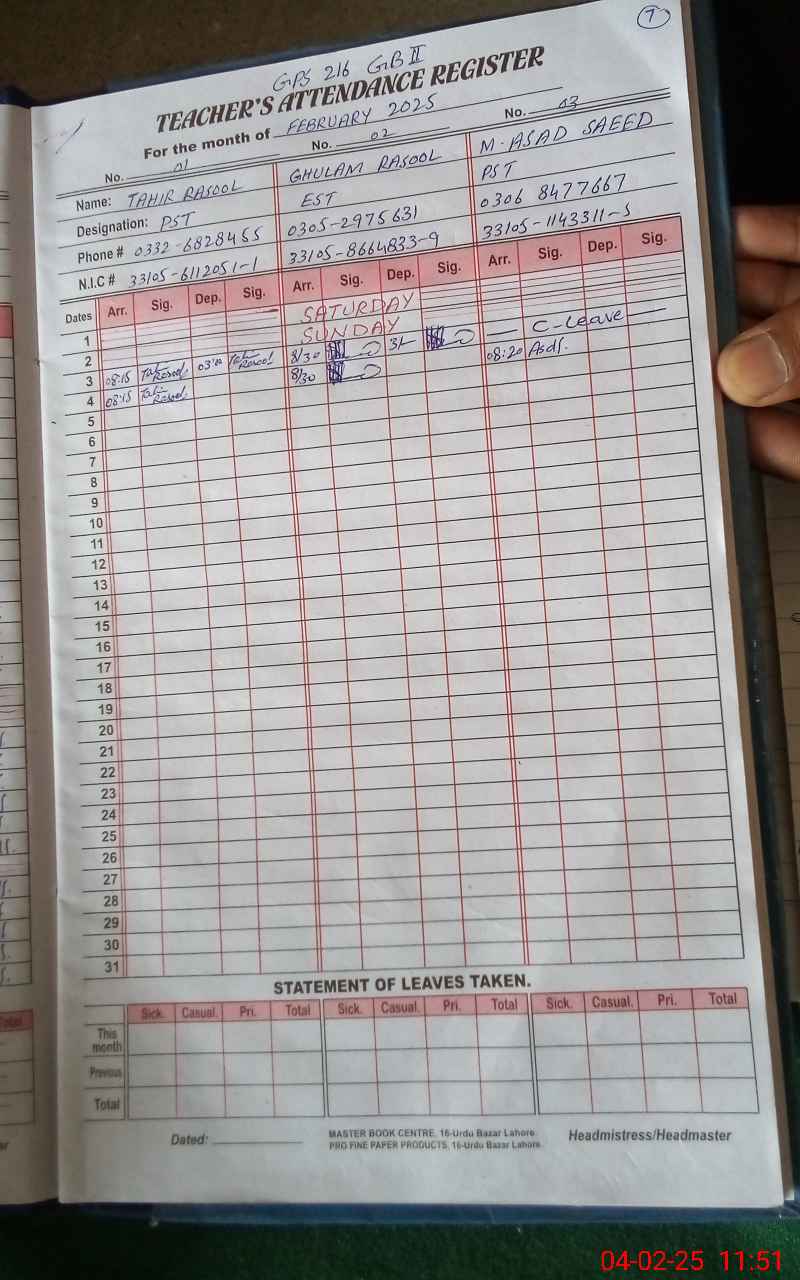 7
GPS 216 GB II
TEACHER'S ATTENDANCE REGISTER
For the month of FEBRUARY 2025
No. 01 No. 02 No. 03
Name: TAHIR RASOOL GHULAM RASOOL M. ASAD SAEED
Designation: PST EST PST
Phone # 0332-6828455 0305-2975631 0306 8477667
N.I.C # 33105-6112051-1 33105-8664833-9 33105-1143311-5
Dates Arr. Sig. Dep. Sig. Arr. Sig. Dep. Sig. Arr. Sig. Dep. Sig.
1 SATURDAY
2 SUNDAY
3 08:15 Tahir Rasool 03:00 Tahir Rasool 8/30 3/- — C-Leave —
4 08:15 Tahir Rasool 8/30 08:20 Asdf.
5
6
7
8
9
10
11
12
13
14
15
16
17
18
19
20
21
22
23
24
25
26
27
28
29
30
31
STATEMENT OF LEAVES TAKEN.
Sick. Casual. Pri. Total Sick. Casual. Pri. Total Sick. Casual. Pri. Total
This month
Previous
Total
Dated: MASTER BOOK CENTRE, 16-Urdu Bazar Lahore. Headmistress/Headmaster
PRO FINE PAPER PRODUCTS, 16-Urdu Bazar Lahore.
04-02-25 11:51